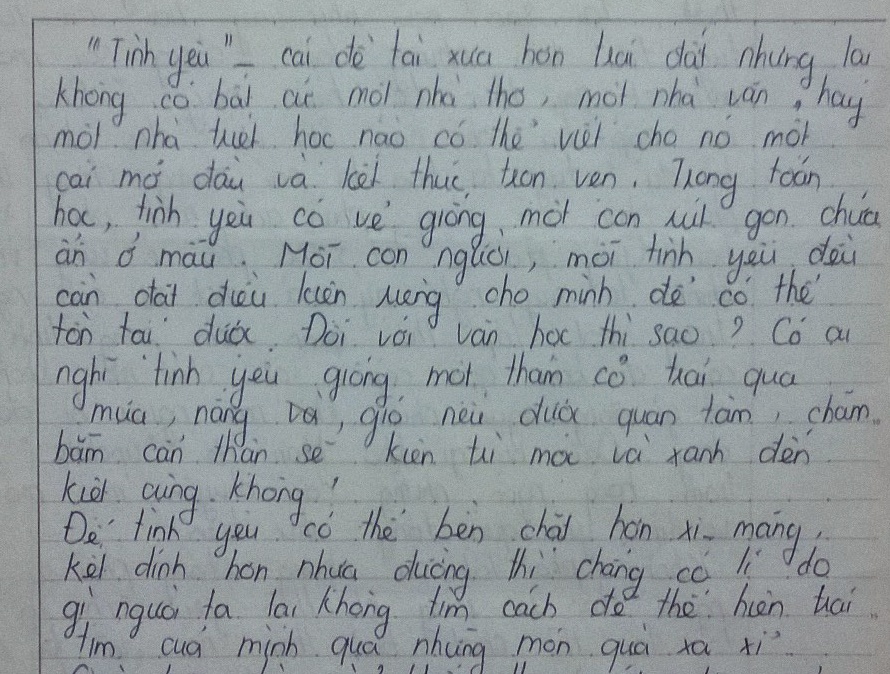 "Tình yêu" – cái đề tài xưa hơn trái đất nhưng lại
không có bất cứ một nhà thơ, một nhà văn, hay
một nhà triết học nào có thể viết cho nó một
cái mở đầu và kết thúc trọn vẹn. Trong toán
học, tình yêu có vẻ giống một con rút gọn chứa
ẩn ở mẫu. Mỗi con người, mỗi tình yêu đều
cần đặt điều kiện riêng cho mình để có thể
tồn tại được. Đối với văn học thì sao? Có ai
nghĩ tình yêu giống một thảm cỏ trải qua
mưa, nắng và, gió nếu được quan tâm, chăm
bẵm cẩn thận sẽ kiên trì mọc và xanh đến
kiệt cùng không!
Để tình yêu có thể bền chặt hơn xi-măng,
kết dính hơn nhựa đường thì chẳng có lí do
gì người ta lại không tìm cách để thể hiện trái
tim của mình qua những món quà xa xỉ